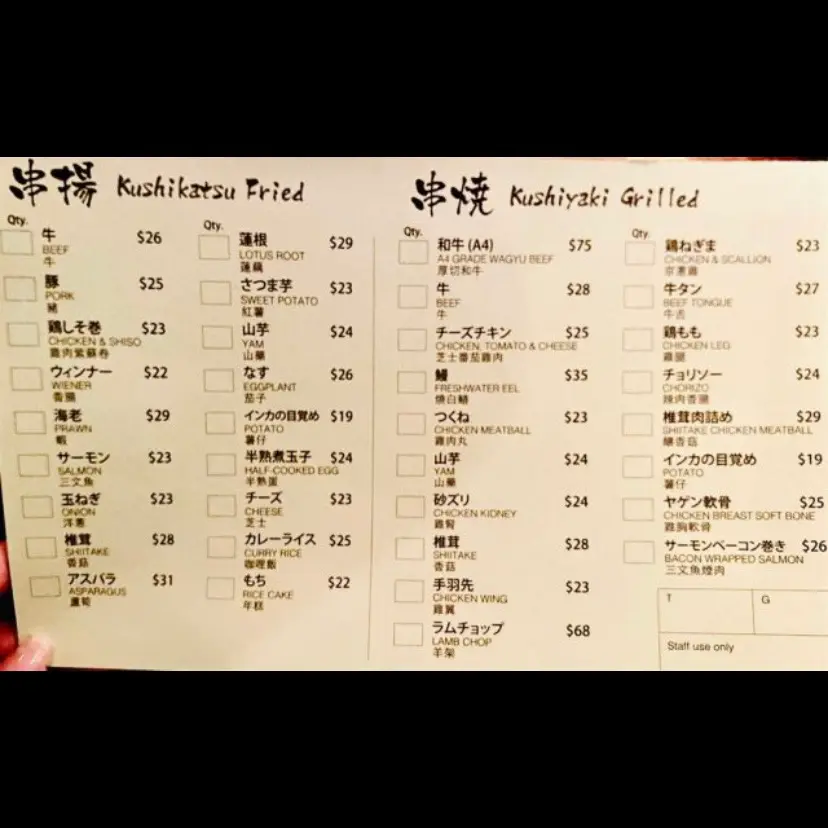 串揚 Kushikatsu Fried
Qty.
牛 $26
BEEF
牛
豚 $25
PORK
豬
鶏しそ巻 $23
CHICKEN & SHISO
雞肉紫蘇卷
ウィンナー $22
WIENER
香腸
海老 $29
PRAWN
蝦
サーモン $23
SALMON
三文魚
玉ねぎ $23
ONION
洋蔥
椎茸 $28
SHIITAKE
香菇
アスパラ $31
ASPARAGUS
蘆筍
Qty.
蓮根 $29
LOTUS ROOT
蓮藕
さつま芋 $23
SWEET POTATO
紅薯
山芋 $24
YAM
山藥
なす $26
EGGPLANT
茄子
インカの目覚め $19
POTATO
薯仔
半熟煮玉子 $24
HALF-COOKED EGG
半熟蛋
チーズ $23
CHEESE
芝士
カレーライス $25
CURRY RICE
咖喱飯
もち $22
RICE CAKE
年糕
串焼 Kushiyaki Grilled
Qty.
和牛 (A4) $75
A4 GRADE WAGYU BEEF
厚切和牛
牛 $28
BEEF
牛
チーズチキン $25
CHICKEN, TOMATO & CHEESE
芝士番茄雞肉
鰻 $35
FRESHWATER EEL
燒白鱔
つくね $23
CHICKEN MEATBALL
雞肉丸
山芋 $24
YAM
山藥
砂ズリ $24
CHICKEN KIDNEY
雞腎
椎茸 $28
SHIITAKE
香菇
手羽先 $23
CHICKEN WING
雞翼
ラムチョップ $68
LAMB CHOP
羊架
Qty.
鶏ねぎま $23
CHICKEN & SCALLION
京蔥雞
牛タン $27
BEEF TONGUE
牛舌
鶏もも $23
CHICKEN LEG
雞腿
チョリソー $24
CHORIZO
辣肉香腸
椎茸肉詰め $29
SHIITAKE CHICKEN MEATBALL
釀香菇
インカの目覚め $19
POTATO
薯仔
ヤゲン軟骨 $25
CHICKEN BREAST SOFT BONE
雞胸軟骨
サーモンベーコン巻き $26
BACON WRAPPED SALMON
三文魚煙肉
T G
Staff use only